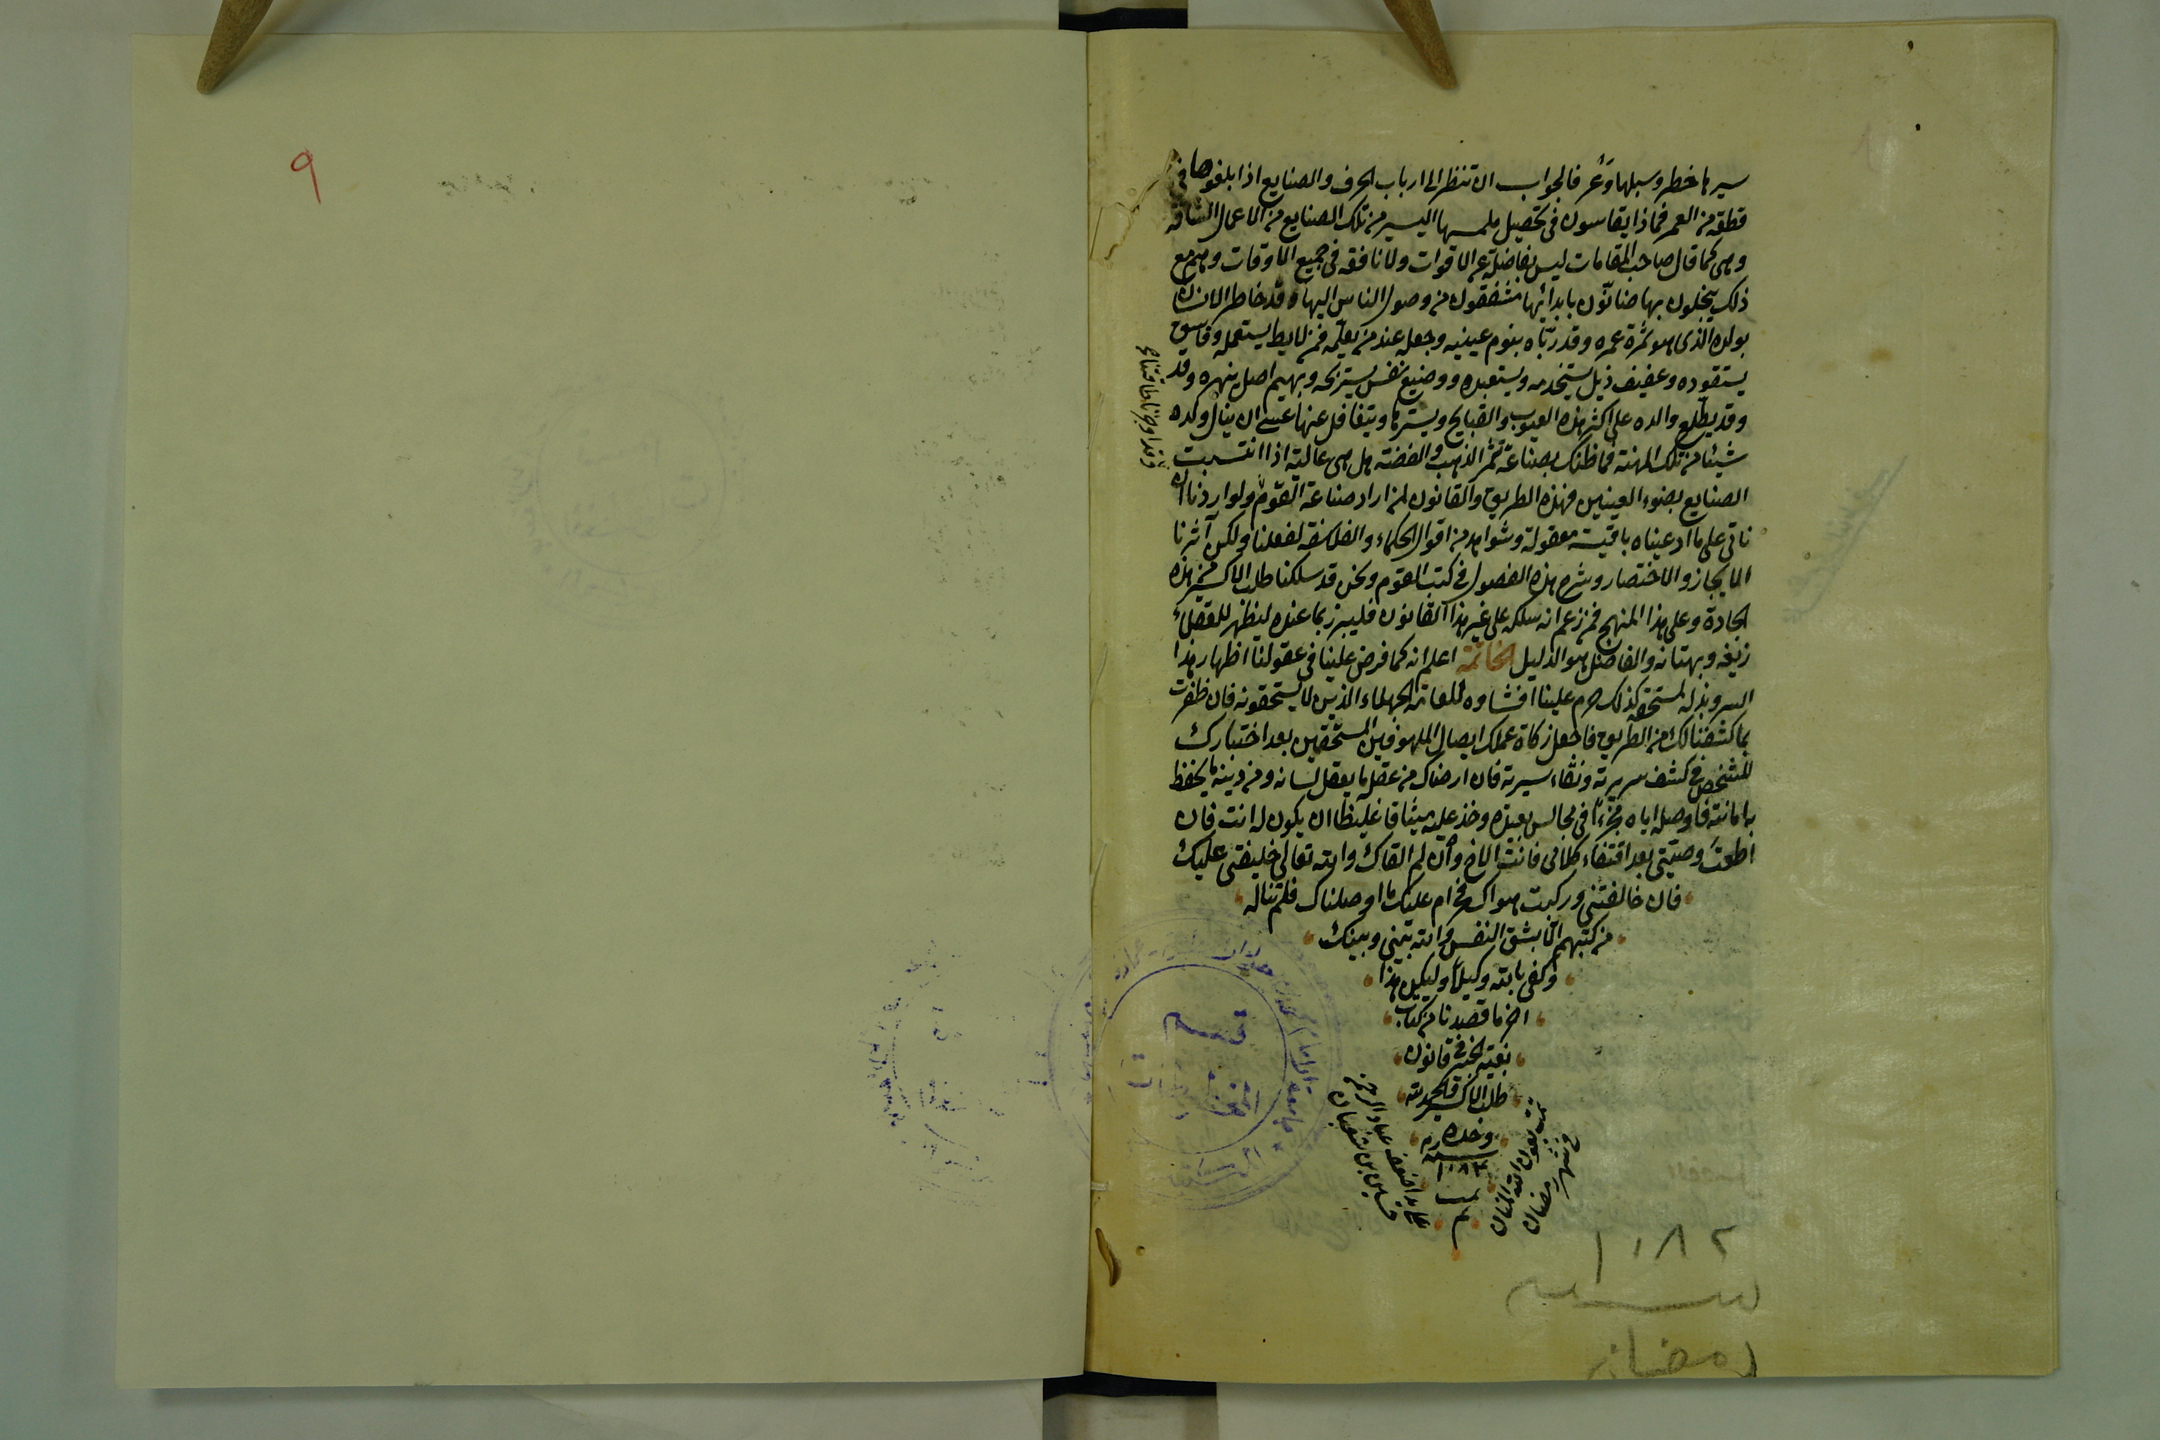 ٩
سيرها خطر وسبلها وعر فالجواب ان تنظر الى ارباب الحرف والصنايع اذا بلغوها في
قطعة من العمر فماذا يقاسون في تحصيل ملمسها اليسير من تلك الصنايع من الاعمال الشاقة
وهي كما قال صاحب المقامات ليس بفاضلة عن الاقوات ولا نافقه في جميع الاوقات وهم مع
ذلك يبخلون بها ضانّون بابدائها مشفقون من وصول الناس اليها وقد خاطر الانسان
بولده الذى هو ثمرة عمره وقد ربّاه بنوم عينيه وجعله عند من يعلّمه فمن لايط يستعمله وفاسق
يستقوده وعفيف ذيل يستخدمه ويستعبده ووضيع نفس وبهيم اصل ينهره وقد
وقد يطّلع والده على اكثر هذه العيوب والقبايح ويسترها ويتغافل عنها عسى ان ينال ولده
شيئا من تلك المهنة فما ظنك بصناعة ثمر الذهب والفضة هل هي عالية اذا انتسبت
الصنايع بضوء العينين فهذه الطريق والقانون لمن اراد صناعة القوم ولو اردنا ان
ناتى على ما ادعيناه باقيسة معقولة وشواهد من اقوال الحكماء والفلاسفة لفعلنا ولكن آثرنا
الايجاز والاختصار وشرح هذه الفصول في كتب القوم ونحن قد سلكنا طلب الاكسير من هذه
الجادة وعلى هذا المنهج فمن زعم انه سلكه على غير هذا القانون فليبرز بما عنده ليظهر للعقلاء
زيغه وبهتانه والفاصل هو الدليل الخاتمة اعلم انه كما فرض علينا في عقولنا اظهار هذا
السر وبذله لمستحقه كذلك حرم علينا افشاوه للعامة الجهلاء الذين لا يستحقونه فان ظفرت
بما كشفنا لك من الطريق فاجعل زكاة عملك ايصال الملهوفين المستحقين بعد اختبارك
للشخص في كشف سريرته ونقاء سيرته فان ارضاك من عقله ما يعقل لسانه ومن دينه ما يحفظ
به امانته فاوصله اياه مجزءًا في مجالس بعيدة وخذ عليه ميثاقا غليظا ان يكون له انت فان
اطعت وصيّتي بعد اقتفاء كلامى فانت الاخ وان لم القاك والله تعالى خليفتي عليك
فان خالفتني وركبت هواك فحرام عليك ما اوصلناك فلم تناله
من كتبهم الّا بشق النفس والله بيني وبينك
وكفى بالله وكيلًا وليكن هذا
اخر ما قصدنا من كتاب
بغية الخبير في قانون
طلب الاكسير والحمد لله
وحده
سنة ١٠٨٢
تمت
م
تمت بعون الله المنان
في شهر رمضان
على يد اضعف عباد الرحمن
حسين بن شعبان
قسم
المخطوطات
١٠٨٢
سنة
رمضان